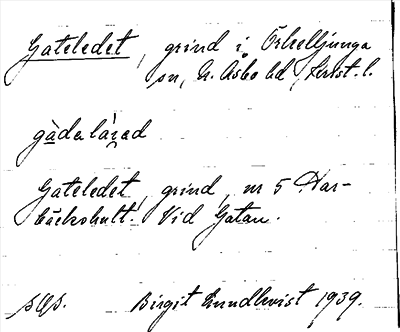 Gateledet, grind i Örkelljunga
sn, N. Åsbo hd, Krist. l.
gàdeláꝛad
Gateledet, grind, nr 5 Har-
bäckshult. Vid Gatan.
Birgit Lundkvist 1939.